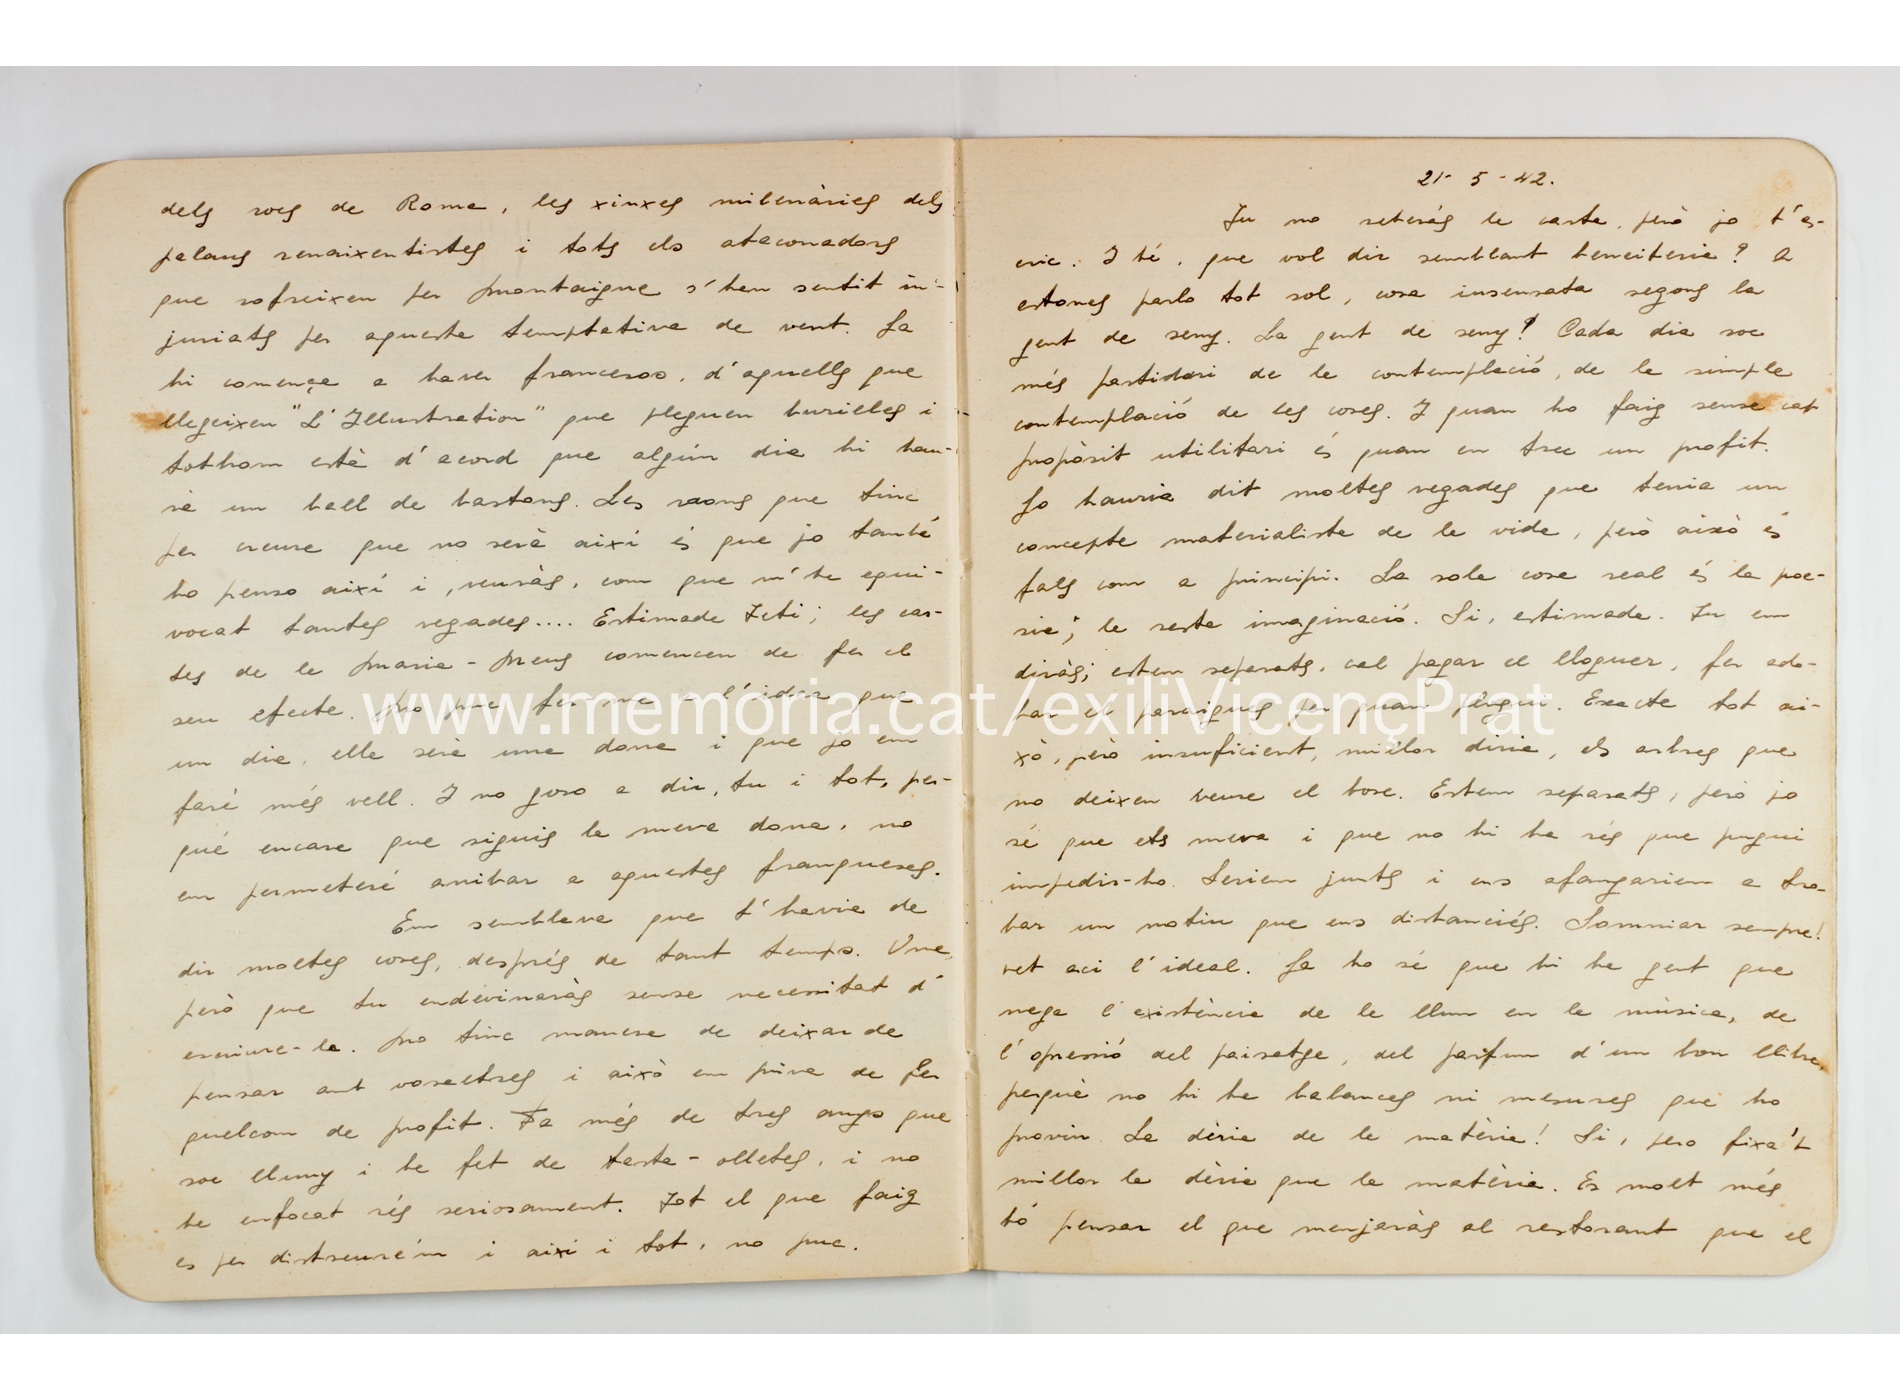 dels rocs de Roma, les xinxes milenàries dels
palaus renaixentistes i tots els ataconadors
que sofreixen per Montaigne s'han sentit in-
juriats per aquesta temptativa de vent. Ja
hi comença a haver francesos, d'aquells que
llegeixen "L'Illustration" que pleguen burilles i
tothom està d'acord que algún dia hi hau-
rà un ball de bastons. Les raons que tinc
per creure que no serà així és que jo també
ho penso així i, veuràs, com que m'he equi-
vocat tantes vegades.... Estimada Teti; les car-
tes de la Maria-Neus comencen de fer el
seu efecte. No puc fer-me a l'idea que
un dia, ella serà una dona i que jo em
faré més vell. I no goso a dir, tu i tot, per-
què encara que siguis la meva dona, no
em permeteré arribar a aquestes franqueses.
Em semblava que t'havia de
dir moltes coses, després de tant temps. Una,
però que tu endevinaràs sense necessitat d'
escriure-la. No tinc manera de deixar de
pensar amb vosaltres i això em priva de fer
quelcom de profit. Fa més de tres anys que
soc lluny i he fet de tasta-olletes, i no
he enfocat rés seriosament. Tot el que faig
es per distreure'm i així i tot, no puc.
21-5-42.
Tu no rebràs la carta, però jo t'es-
cric. I té, que vol dir semblant beneiteria? A
estones parlo tot sol, cosa insensata segons la
gent de seny. La gent de seny? Cada dia soc
més partidari de la contemplació, de la simple
contemplació de les coses. I quan ho faig sense cap
propòsit utilitari és quan en trec un profit.
Jo hauria dit moltes vegades que tenia un
concepte materialista de la vida, però això és
fals com a principi. La sola cosa real és la poe-
sia; la resta imaginació. Si, estimada. Tu em
diràs; estem separats, cal pagar el lloguer, fer ado-
bar el paraigues per quan plogui. Exacte tot ai-
xò, però insuficient, millor diria, els arbres que
no deixen veure el bosc. Estem separats, però jo
sé que ets meva i que no hi ha rés que pugui
impedir-ho. Seriem junts i ens afanyariem a tro-
bar un motiu que ens distanciés. Somniar sempre!
vet aci l'ideal. Ja ho sé que hi ha gent que
nega l'existència de la llum en la música, de
l'opressió del paisatge, del parfum d'un bon llibre,
perquè no hi ha balances ni mesures que ho
provin. La dèria de la matèria! Si, pero fixa't
millor la dèria que la matèria. Es molt més
bó pensar el que menjaràs al restorant que el
www.memoria.cat/exiliVicençPrat